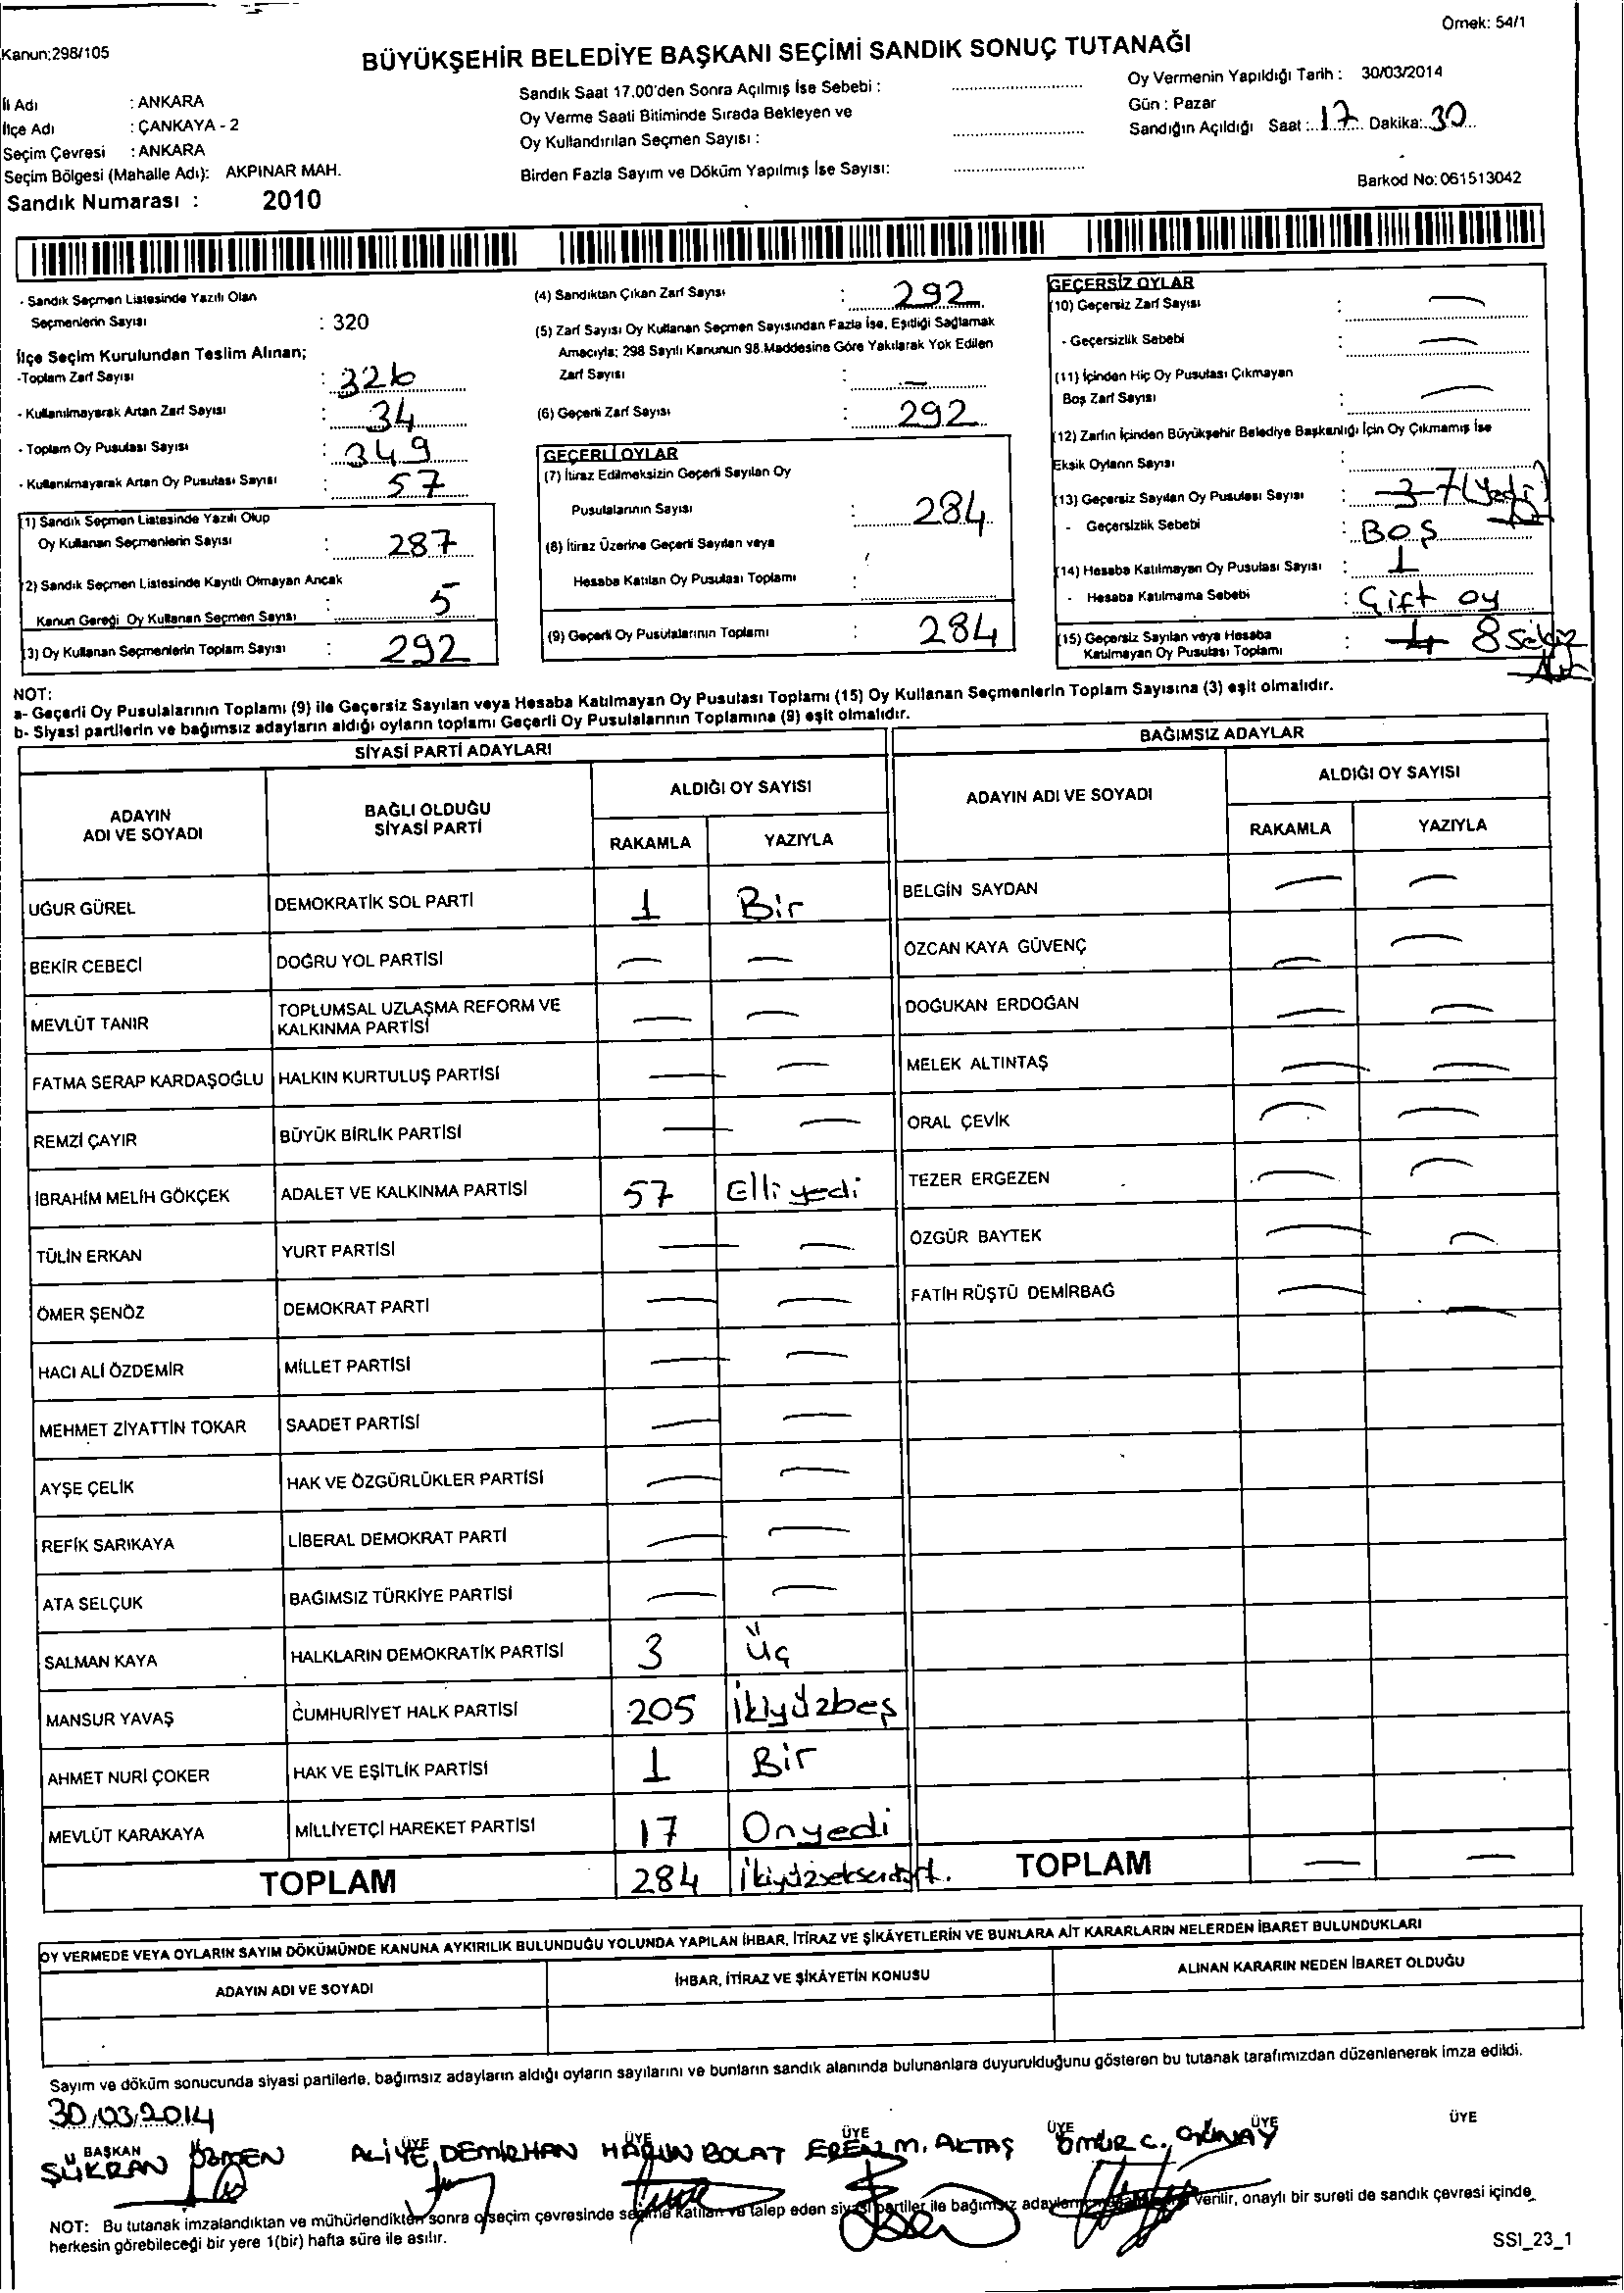 Örnek: 54/1
Kanun:298/105
BÜYÜKŞEHİR BELEDİYE BAŞKANI SEÇİMİ SANDIK SONUÇ TUTANAĞI
İl Adı : ANKARA
İlçe Adı : ÇANKAYA - 2
Seçim Çevresi : ANKARA
Seçim Bölgesi (Mahalle Adı): AKPINAR MAH.
Sandık Numarası : 2010
Sandık Saat 17.00'den Sonra Açılmış İse Sebebi :
Oy Verme Saati Bitiminde Sırada Bekleyen ve
Oy Kullandırılan Seçmen Sayısı :
Birden Fazla Sayım ve Döküm Yapılmış İse Sayısı:
Oy Vermenin Yapıldığı Tarih : 30/03/2014
Gün : Pazar
Sandığın Açıldığı Saat : 17 Dakika: 30
Barkod No: 061513042
- Sandık Seçmen Listesinde Yazılı Olan
Seçmenlerin Sayısı : 320
İlçe Seçim Kurulundan Teslim Alınan;
-Toplam Zarf Sayısı : 326
- Kullanılmayarak Artan Zarf Sayısı : 34
- Toplam Oy Pusulası Sayısı : 349
- Kullanılmayarak Artan Oy Pusulası Sayısı : 57
(1) Sandık Seçmen Listesinde Yazılı Olup
Oy Kullanan Seçmenlerin Sayısı : 287
(2) Sandık Seçmen Listesinde Kayıtlı Olmayan Ancak
Kanun Gereği Oy Kullanan Seçmen Sayısı : 5
(3) Oy Kullanan Seçmenlerin Toplam Sayısı : 292
(4) Sandıktan Çıkan Zarf Sayısı : 292
(5) Zarf Sayısı Oy Kullanan Seçmen Sayısından Fazla İse, Eşitliği Sağlamak
Amacıyla; 298 Sayılı Kanunun 98.Maddesine Göre Yakılarak Yok Edilen
Zarf Sayısı : -
(6) Geçerli Zarf Sayısı : 292
GEÇERLİ OYLAR
(7) İtiraz Edilmeksizin Geçerli Sayılan Oy
Pusulalarının Sayısı : 284
(8) İtiraz Üzerine Geçerli Sayılan veya
Hesaba Katılan Oy Pusulası Toplamı :
(9) Geçerli Oy Pusulalarının Toplamı : 284
GEÇERSİZ OYLAR
(10) Geçersiz Zarf Sayısı : -
- Geçersizlik Sebebi : -
(11) İçinden Hiç Oy Pusulası Çıkmayan
Boş Zarf Sayısı : -
(12) Zarfın İçinden Büyükşehir Belediye Başkanlığı İçin Oy Çıkmamış İse
Eksik Oyların Sayısı :
(13) Geçersiz Sayılan Oy Pusulası Sayısı : 3 7 (Yedi)
- Geçersizlik Sebebi : BOŞ
(14) Hesaba Katılmayan Oy Pusulası Sayısı : 1
- Hesaba Katılmama Sebebi : Çift oy
(15) Geçersiz Sayılan veya Hesaba
Katılmayan Oy Pusulası Toplamı : 4 8 Sekiz
NOT:
a- Geçerli Oy Pusulalarının Toplamı (9) ile Geçersiz Sayılan veya Hesaba Katılmayan Oy Pusulası Toplamı (15) Oy Kullanan Seçmenlerin Toplam Sayısına (3) eşit olmalıdır.
b- Siyasi partilerin ve bağımsız adayların aldığı oyların toplamı Geçerli Oy Pusulalarının Toplamına (9) eşit olmalıdır.
SİYASİ PARTİ ADAYLARI
ADAYIN ADI VE SOYADI
BAĞLI OLDUĞU SİYASİ PARTİ
ALDIĞI OY SAYISI
RAKAMLA YAZIYLA
UĞUR GÜREL DEMOKRATİK SOL PARTİ 1 Bir
BEKİR CEBECİ DOĞRU YOL PARTİSİ - -
MEVLÜT TANIR TOPLUMSAL UZLAŞMA REFORM VE KALKINMA PARTİSİ - -
FATMA SERAP KARDAŞOĞLU HALKIN KURTULUŞ PARTİSİ - -
REMZİ ÇAYIR BÜYÜK BİRLİK PARTİSİ - -
İBRAHİM MELİH GÖKÇEK ADALET VE KALKINMA PARTİSİ 57 Elli yedi
TÜLİN ERKAN YURT PARTİSİ - -
ÖMER ŞENÖZ DEMOKRAT PARTİ - -
HACI ALİ ÖZDEMİR MİLLET PARTİSİ - -
MEHMET ZİYATTİN TOKAR SAADET PARTİSİ - -
AYŞE ÇELİK HAK VE ÖZGÜRLÜKLER PARTİSİ - -
REFİK SARIKAYA LİBERAL DEMOKRAT PARTİ - -
ATA SELÇUK BAĞIMSIZ TÜRKİYE PARTİSİ - -
SALMAN KAYA HALKLARIN DEMOKRATİK PARTİSİ 3 Üç
MANSUR YAVAŞ CUMHURİYET HALK PARTİSİ 205 İkiyüzbeş
AHMET NURİ ÇOKER HAK VE EŞİTLİK PARTİSİ 1 Bir
MEVLÜT KARAKAYA MİLLİYETÇİ HAREKET PARTİSİ 17 Onyedi
TOPLAM 284 İkiyüzseksendört.
BAĞIMSIZ ADAYLAR
ADAYIN ADI VE SOYADI
ALDIĞI OY SAYISI
RAKAMLA YAZIYLA
BELGİN SAYDAN - -
ÖZCAN KAYA GÜVENÇ - -
DOĞUKAN ERDOĞAN - -
MELEK ALTINTAŞ - -
ORAL ÇEVİK - -
TEZER ERGEZEN - -
ÖZGÜR BAYTEK - -
FATİH RÜŞTÜ DEMİRBAĞ - -
TOPLAM - -
OY VERMEDE VEYA OYLARIN SAYIM DÖKÜMÜNDE KANUNA AYKIRILIK BULUNDUĞU YOLUNDA YAPILAN İHBAR, İTİRAZ VE ŞİKÂYETLERİN VE BUNLARA AİT KARARLARIN NELERDEN İBARET BULUNDUKLARI
ADAYIN ADI VE SOYADI
İHBAR, İTİRAZ VE ŞİKÂYETİN KONUSU
ALINAN KARARIN NEDEN İBARET OLDUĞU
Sayım ve döküm sonucunda siyasi partilerle, bağımsız adayların aldığı oyların sayılarını ve bunların sandık alanında bulunanlara duyurulduğunu gösteren bu tutanak tarafımızdan düzenlenerek imza edildi.
30/03/2014
BAŞKAN ÜYE ÜYE ÜYE ÜYE ÜYE ÜYE
ŞÜKRAN ALİYE DEMİRHAN HARUN BOLAT EREN M. AKTAŞ ÖMÜR C. GÜNAY
NOT: Bu tutanak imzalandıktan ve mühürlendikten sonra o seçim çevresinde seçime katılan ve talep eden siyasi partiler ile bağımsız verilir, onaylı bir sureti de sandık çevresi içinde
herkesin görebileceği bir yere 1(bir) hafta süre ile asılır.
SSI_23_1